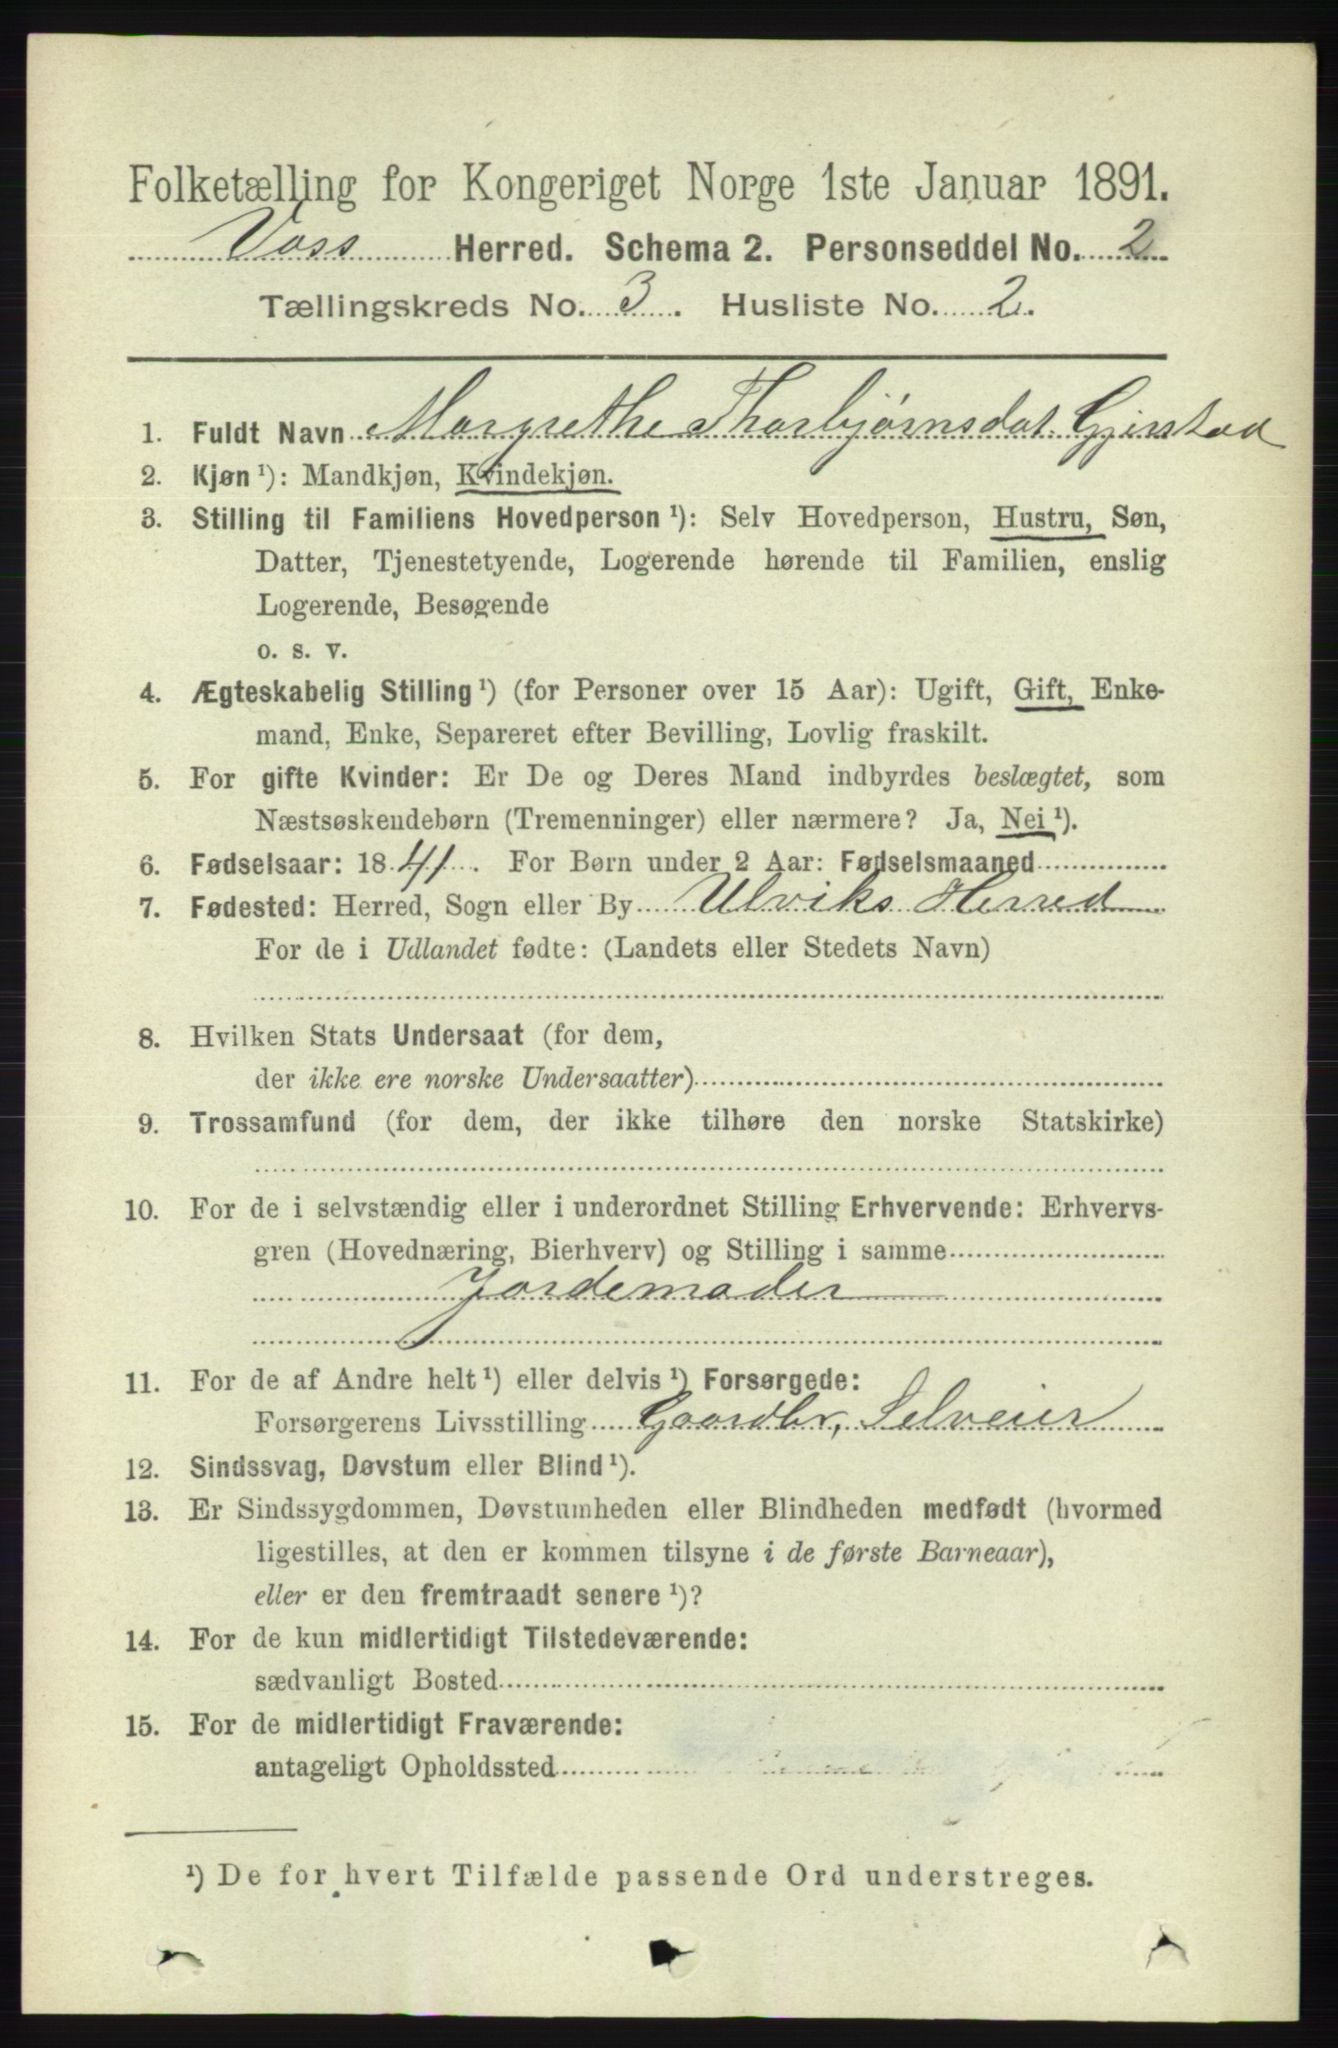 Folketælling for Kongeriget Norge 1ste Januar 1891.
Voss Herred. Schema 2. Personseddel No. 2
Tællingskreds No. 3. Husliste No. 2.
1. Fuldt Navn Margrethe Thorbjørnsdat. Gjerstad
2. Kjøn ¹): Mandkjøn, Kvindekjøn.
3. Stilling til Familiens Hovedperson ¹): Selv Hovedperson, Hustru, Søn,
Datter, Tjenestetyende, Logerende hørende til Familien, enslig
Logerende, Besøgende
o. s. v.
4. Ægteskabelig Stilling ¹) (for Personer over 15 Aar): Ugift, Gift, Enke-
mand, Enke, Separeret efter Bevilling, Lovlig fraskilt.
5. For gifte Kvinder: Er De og Deres Mand indbyrdes beslægtet, som
Næstsøskendebørn (Tremenninger) eller nærmere? Ja, Nei ¹).
6. Fødselsaar: 1841. For Børn under 2 Aar: Fødselsmaaned
7. Fødested: Herred, Sogn eller By Ulviks Herred
For de i Udlandet fødte: (Landets eller Stedets Navn)
8. Hvilken Stats Undersaat (for dem,
der ikke ere norske Undersaatter)
9. Trossamfund (for dem, der ikke tilhøre den norske Statskirke)
10. For de i selvstændig eller i underordnet Stilling Erhvervende: Erhvervs-
gren (Hovednæring, Bierhverv) og Stilling i samme
Jordemoder
11. For de af Andre helt ¹) eller delvis ¹) Forsørgede:
Forsørgerens Livsstilling Gaardbr, Selveier
12. Sindssvag, Døvstum eller Blind ¹).
13. Er Sindssygdommen, Døvstumheden eller Blindheden medfødt (hvormed
ligestilles, at den er kommen tilsyne i de første Barneaar),
eller er den fremtraadt senere ¹)?
14. For de kun midlertidigt Tilstedeværende:
sædvanligt Bosted
15. For de midlertidigt Fraværende:
antageligt Opholdssted
¹) De for hvert Tilfælde passende Ord understreges.